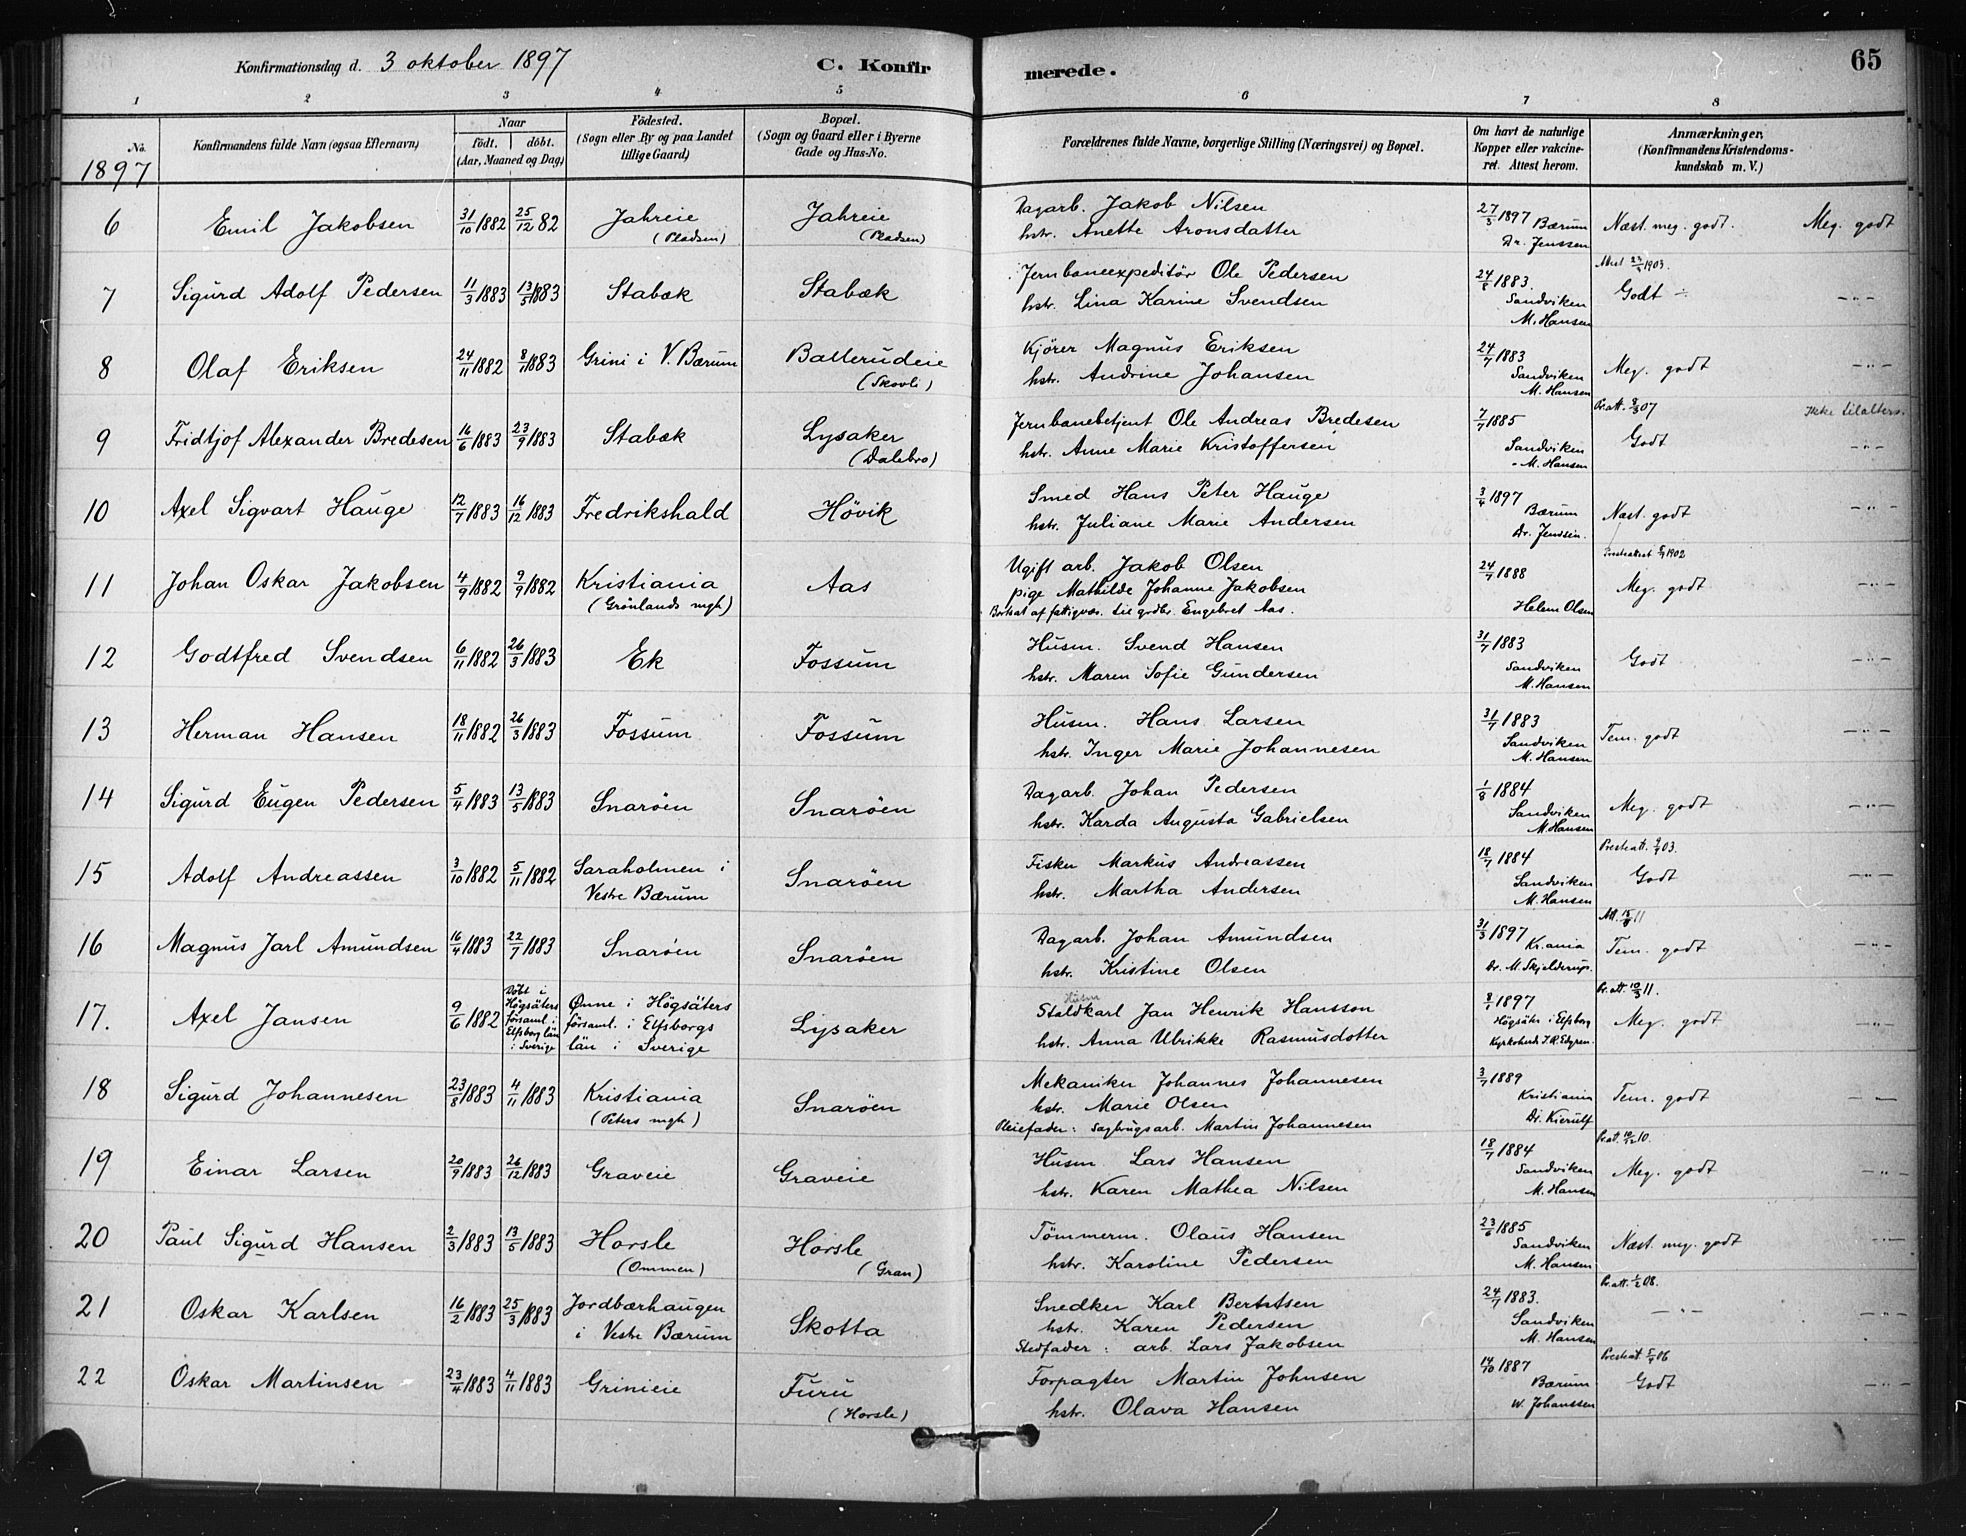 Konfirmationsdag d. 3 oktober 1897 C. Konfirmerede. 65
1 2 3 4 5 6 7 8
No. Konfirmandens fulde Navn (ogsaa Efternavn) Naar födt. döbt. (Aar, Maaned og Dag) Födested. (Sogn eller By og paa Landet tillige Gaard) Bopæl. (Sogn og Gaard eller i Byerne Gade og Hus-No. Forældrenes fulde Navne, borgerlige Stilling (Næringsvei) og Bopæl. Om havt de naturlige Kopper eller vakcineret. Attest herom. Anmærkninger, (Konfirmandens Kristendomskundskab m. V.)
1897
6 Emil Jakobsen 31/10 1882 25/12 82 Jahreie (Pladsen) Jahreie (Pladsen) Dagarb. Jakob Nilsen
hstr. Anette Aronsdatter 27/3 1897 Bærum Dr. Jenssen Næst. meg. godt. Meg. godt
7 Sigurd Adolf Pedersen 11/3 1883 13/5 1883 Stabæk Stabæk Jernbaneexpeditör Ole Pedersen
hstr. Lina Karine Svendsen 24/8 1883. Sandviken M. Hansen Attest 1903. Godt ÷ -"-
8 Olaf Eriksen 24/11 1882 8/1 1883 Grini i V. Bærum Ballerudeie (Skovli) Kjörer Magnus Eriksen
hstr. Andrine Johansen 24/7 1883 Sandviken M. Hansen Meg. godt -"-
9 Fridtjof Alexander Bredesen 16/6 1883 23/9 1883 Stabæk Lysaker (Dalebro) Jernbanebetjent Ole Andreas Bredesen
hstr. Anne Marie Kristoffersen 7/7 1885 Sandviken M. Hansen Pr. att. 07 Godt Ikke tilalters. -"-
10 Axel Sigvart Hauge 12/7 1883 16/12 1883 Fredrikshald Hövik Smed Hans Peter Hauge
hstr. Juliane Marie Andersen 3/4 1897 Bærum Dr. Jenssen. Næst. godt -"-
11 Johan Oskar Jakobsen 4/9 1882 9/9 1882 Kristiania (Grönlands mgh) Aas Ugift arb. Jakob Olsen
pige Mathilde Johanne Jakobsen
Bortsat af fattigvæs. til grdbr. Engebret Aas. 24/7 1888 Helene Olsen 1902 Meg. godt -"-
12 Godtfred Svendsen 6/11 1882 26/3 1883 Ek Fossum Husm. Svend Hansen
hstr. Maren Sofie Gundersen 31/7 1883 Sandviken M. Hansen Godt -"-
13 Herman Hansen 18/11 1882 26/3 1883 Fossum Fossum Husm. Hans Larsen
hstr. Inger Marie Johannesen 31/7 1883 Sandviken M. Hansen Tem. godt -"-
14 Sigurd Eugen Pedersen 5/4 1883 13/5 1883 Snaröen Snaröen Dagarb. Johan Pedersen
hstr. Karda Augusta Gabrielsen 1/8 1884 Sandviken M. Hansen Meg. godt -"-
15 Adolf Andreassen 3/10 1882 5/11 1882 Saraholmen i Vestre Bærum Snaröen Fisker Markus Andreassen
hstr. Martha Andersen 18/7 1884 Sandviken M. Hansen Presteatt. 03. Godt -"-
16 Magnus Jarl Amundsen 16/4 1883 22/7 1883 Snaröen Snaröen Dagarb. Johan Amundsen
hstr. Kristine Olsen 31/3 1897 Kr.ania Dr. M. Skjelderup. Att. 11 Tem. godt -"-
17. Axel Jansen 9/6 1882 Döbt i Högsäters församl. i Elfsborg län i Sverige Önne i Högsäters församl. i Elfsborgs län i Sverige Lysaker Husm Staldkarl Jan Henrik Hansson
hstr. Anna Ulrikke Rasmusdotter 1897 Högsäter i Elfsborg Kyrkoherde Pr. att. 10/3 11. Meg. godt -"-
18 Sigurd Johannesen 23/8 1883 4/11 1883 Kristiania (Peters mgh) Snaröen Mekaniker Johannes Johannesen
hstr. Marie Olsen
Pleiefader: Sagbrugsarb. Martin Johannesen 3/7 1889 Kristiania Dr. Kierulf Tem. godt -"-
19 Einar Larsen 20/9 1883 26/12 1883 Graveie Graveie Husm Lars Hansen
hstr. Karen Mathea Nilsen 18/7 1884 Sandviken M. Hansen Pr. at. 10/12 10. Meg. godt -"-
20 Paul Sigurd Hansen 2/3 1883 13/5 1883 Horsle (Ommen) Horsle (Gran) Tömmerm. Olaus Hansen
hstr. Karoline Pedersen 23/6 1885 Sandviken M. Hansen Næst. meg. godt -"-
21 Oskar Karlsen 16/2 1883 25/3 1883 Jordbærhaugen i Vestre Bærum Skotta Snedker Karl Berntsen
hstr. Karen Pedersen
Stedfader: arb. Lars Jakobsen 24/7 1883. Sandviken M. Hansen Pr. att. 1/2 08. -"- -"-
22 Oskar Martinsen 23/4 1883 4/11 1883 Grinieie Furu (Horsle) Forpagter Martin Johnsen
hstr. Olava Hansen 14/10 1887 Bærum W. Johanssen Presteat. 06 Godt -"-